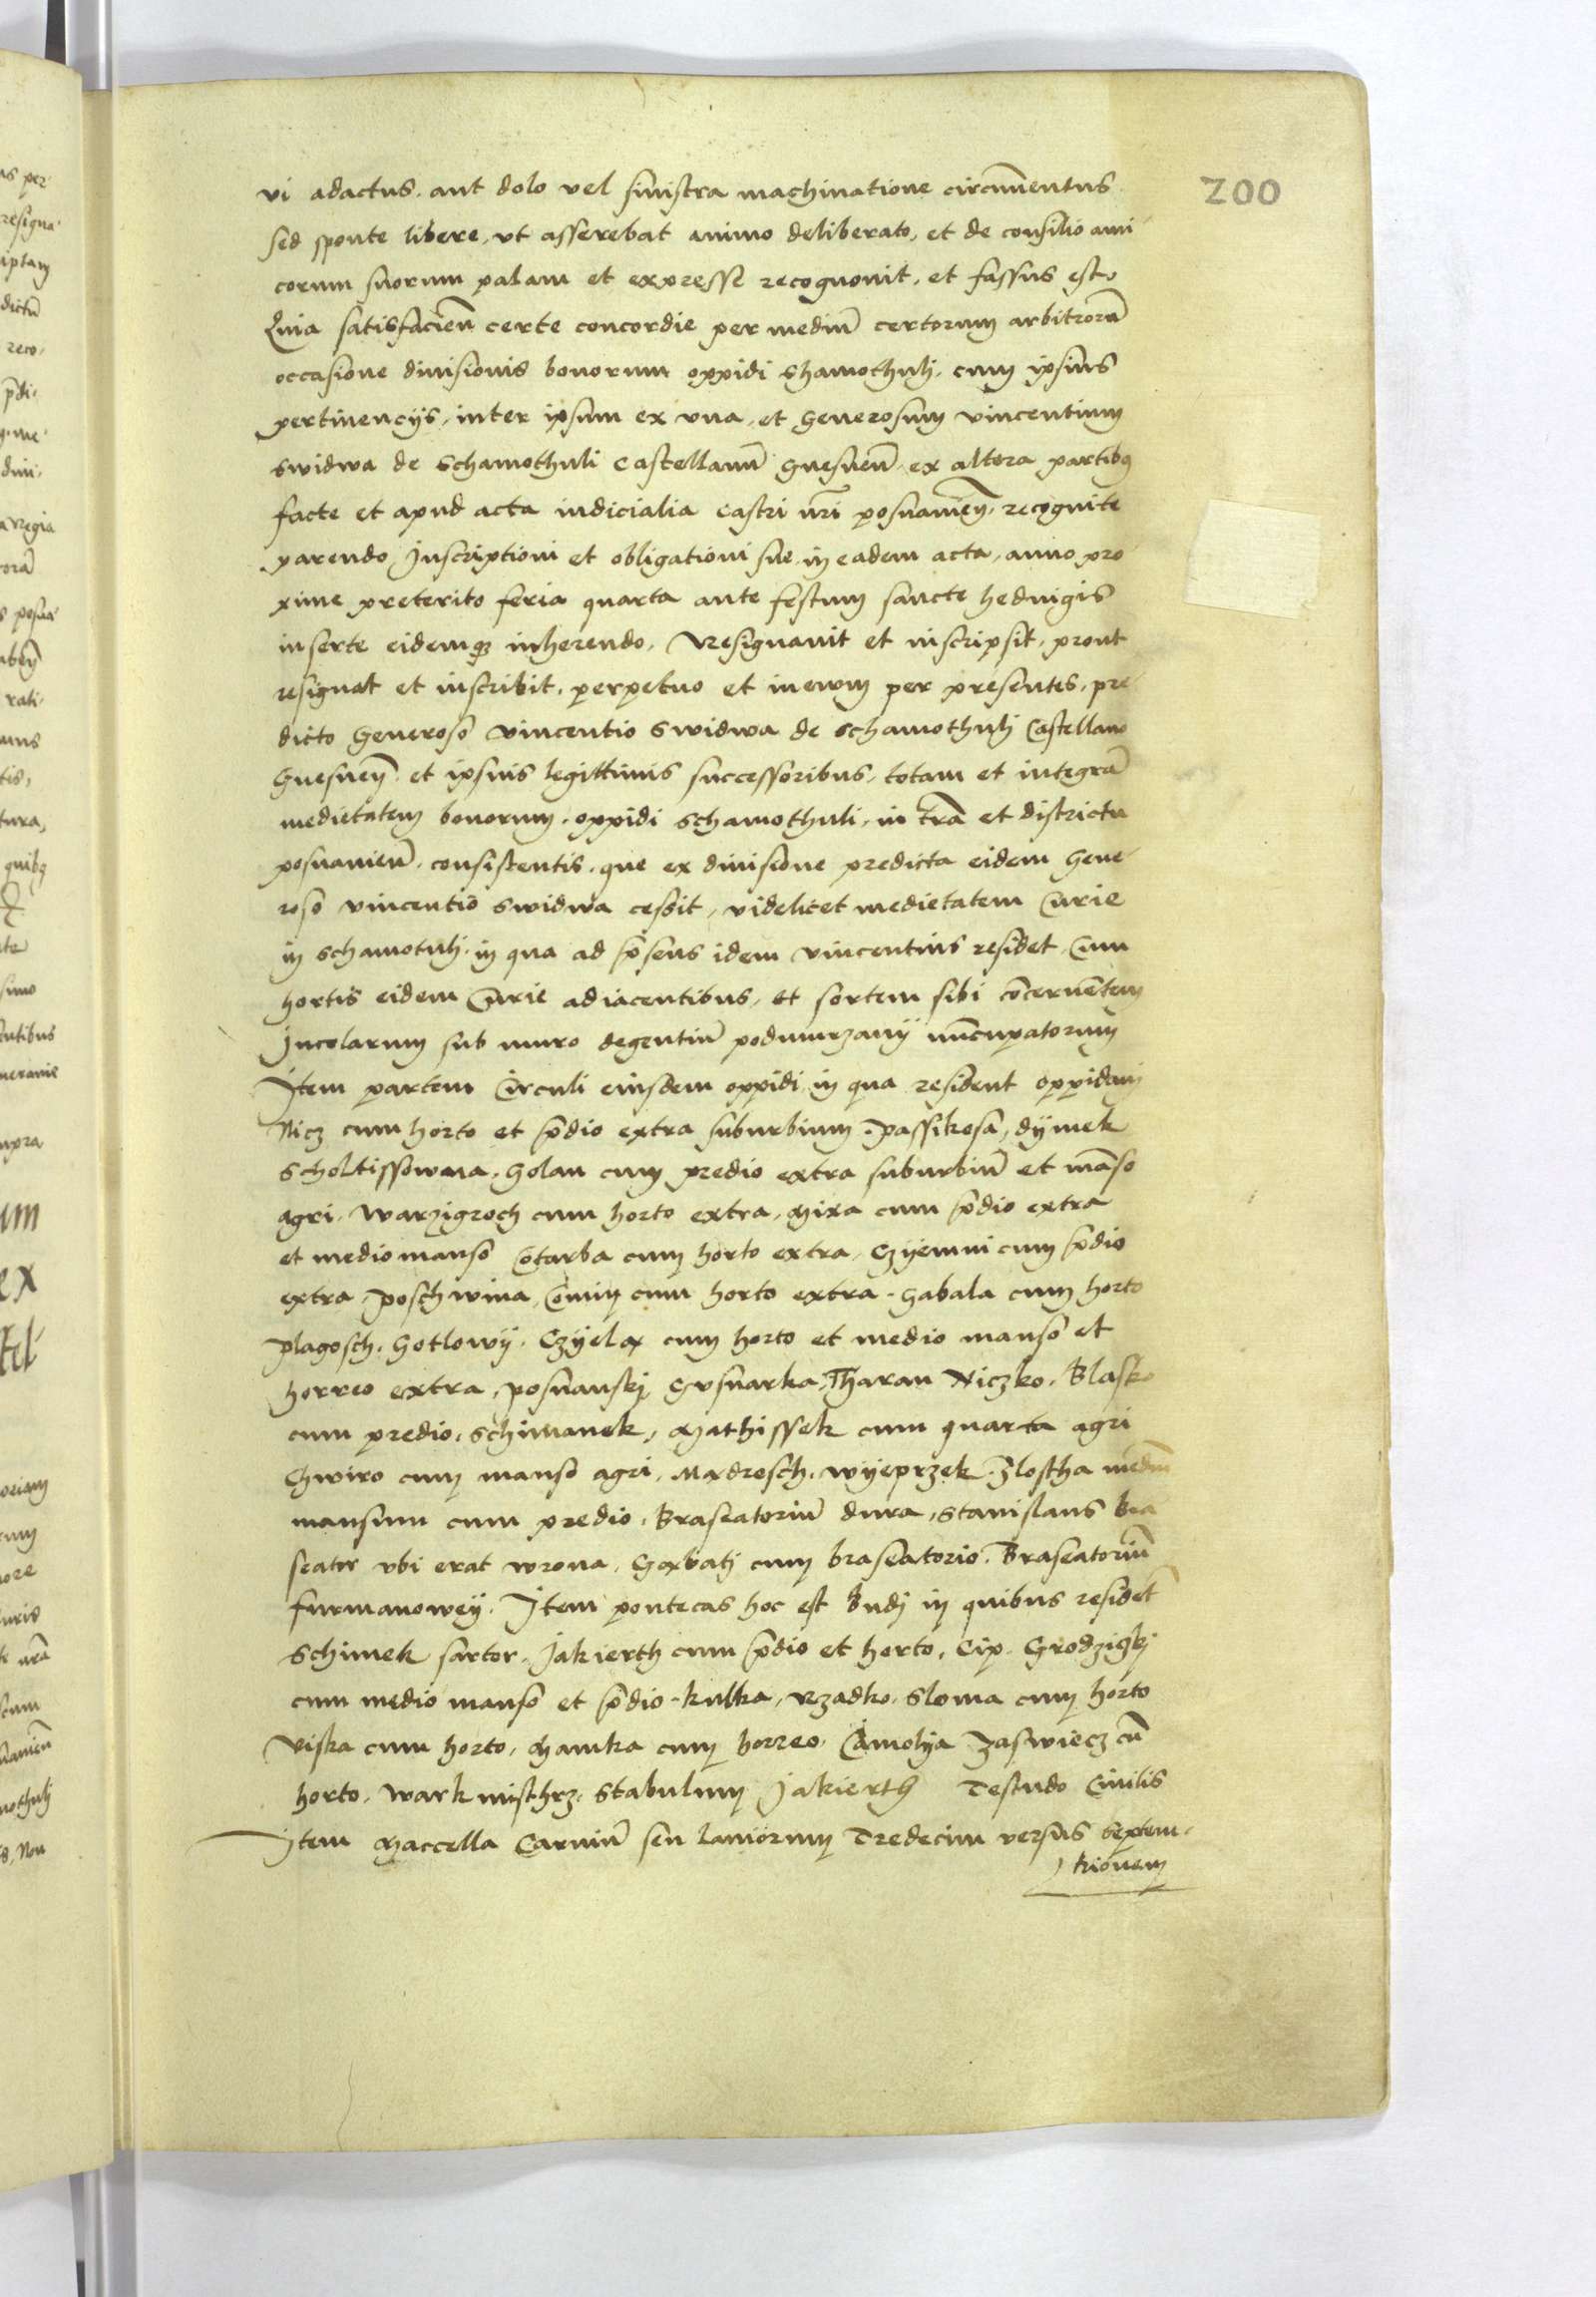 200
vi adactus. aut dolo vel sinistra machinatione circumventus
sed sponte libere, ut asserebat animo deliberato, et de consilio ami
corum suorum palam et expresse recognovit, et fassus est,
Quia satisfacieñ certe concordie per mediũ certorum arbitrorũ
occasione divisionis bonorum oppidi Shamothulj. cum ipsius
pertinencijs, inter ipsum ex una, et Generosum Vincentium
Swidwa de Schamothuli Castellanũ Gnesneñ ex altera partibq
facte et apud acta iudicialia Castri nr̃i posnanieñ, recognite
parendo Inscriptioni et obligationi sue in eadem acta, anno pro
xime preterito feria quarta ante festum sancte hedvigis
inserte eidemq̃ inherendo, Resignavit et inscripsit, prout
resignat et inscribit, perpetuo et in ewm per presentes, pre
dicto Generoso Vincentio Swidwa de Schamothulj Castellano
Gnesneñ et ipsius legittimis successoribus, totam et integrã
medietatem bonorum. oppidi Schamothuli, in tr̃a et districtu
posnanieñ. consistentis. que ex divisione predicta eidem Gene
roso Vincentio Swidwa cessit, videlicet medietatem Curie
in Schamotulj. in qua ad p̃sens idem Vincentius residet Cum
hortis eidem Curie adiacentibus, et sortem sibi cõcernẽtem
Incolarum sub muro degentiũ podmurzanÿ nũcupatorum
Item partem Circuli eiusdem oppidi in qua resident oppidani
Nicz cum horto et p̃dio extra suburbium. Passikosa, Dÿmek
Scholtissowna. Golan cum predio extra suburbiũ et mãso
agri. Warzigroch cum horto extra, Mixa cum p̃dio extra
et medio manso Cõtarba cum horto extra, Czÿemni cum p̃dio
extra, Poschwina, Comin cum horto extra. Gabala cum horto
Plagosch. Gotlowÿ. Czÿelax cum horto et medio manso et
horreo extra, Posnanskj Gusnarka, Tharan Niczko, Blasko
cum predio, Schimanek, Mathissek cum quarta agri
Chwiro cum manso agri, Mxdrosch. Wÿeprzek. Zlostha mediũ
mansum cum predio, Braseatoriũ dura, Stanislaus Bra
seator ubi erat Wrona, Gaxbatj cum braseatorio. Braseatoriũ
furmanoweÿ. Item pontecas hoc est Budj in quibus residet
Schimek sartor. Jakierth cum p̃dio et horto, Cip. Grodziskj
cum medio manso et p̃dio. Kulka, Rzadko. Sloma cum horto
Viska cum horto, Hanka cum horreo. Camolya Zaswiecz cũ
horto. Warkmisthrz. Stabulum Jakierth Testudo Civilis
Item Maccella Carniũ seu laniorum Tredecim versus Septem
trionem